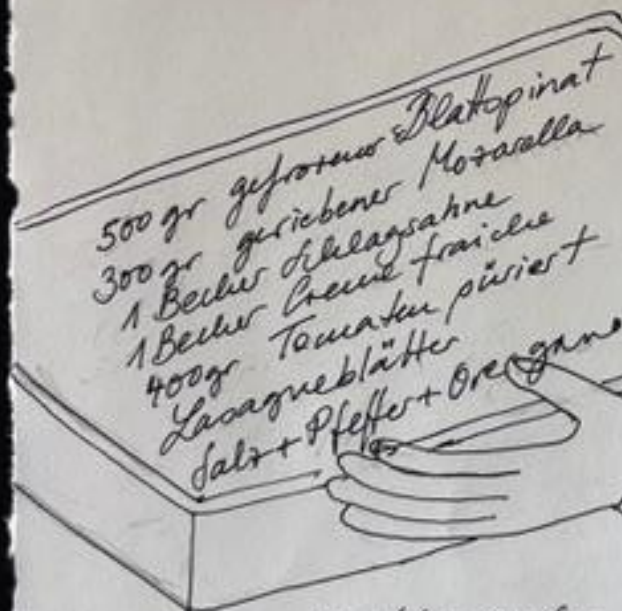 500 gr gefrorener Blattspinat
300 gr geriebener Mozarella
1 Becher Schlagsahne
1 Becher Creme fraiche
400gr Tomaten püriert
Lasagneblätter
Salz + Pfeffer + Oregano